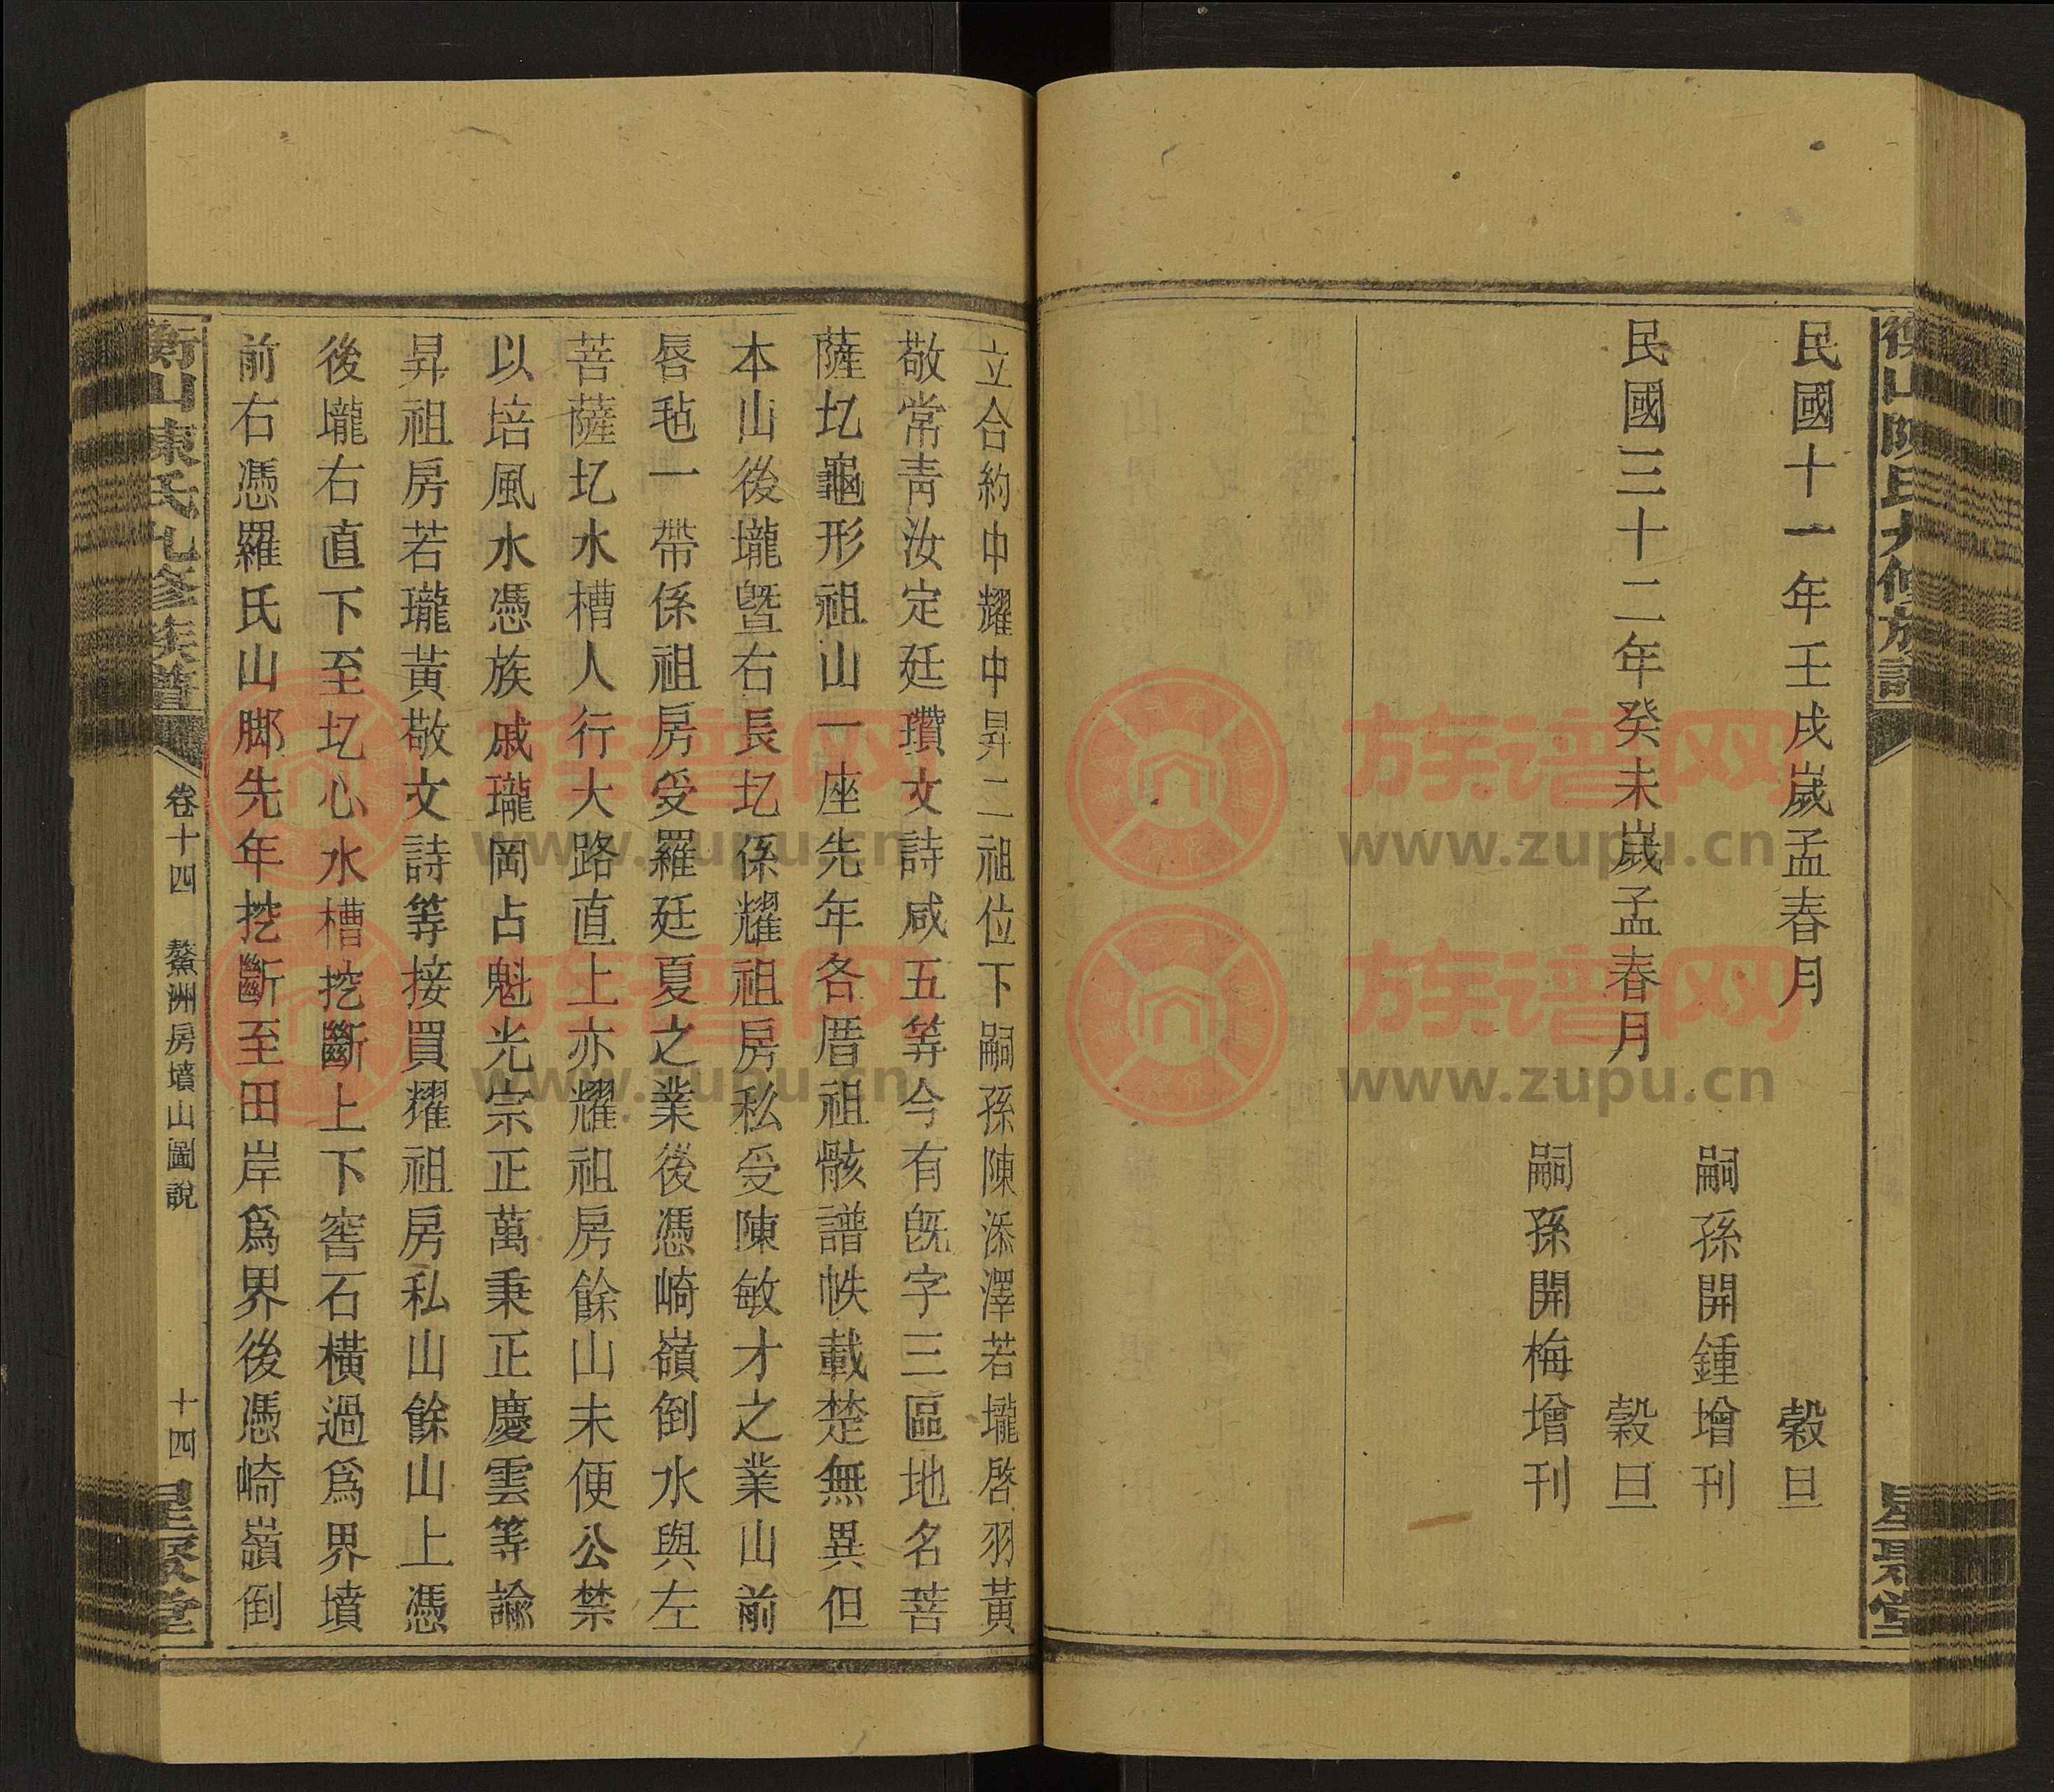 衡山陳氏九修族譜
星聚堂
民國十一年壬戌歲孟春月 穀旦
嗣孫開鍾增刊
民國三十二年癸未歲孟春月 穀旦
嗣孫開梅增刊
立合約中耀中昇二祖位下嗣孫陳添澤若壠啓羽黃
敬常靑汝定廷瓚文詩咸五等今有旣字三區地名菩
薩圠龜形祖山一座先年各厝祖骸譜帙載楚無異但
本山後壠曁右長圠係耀祖房私受陳敏才之業山前
唇毡一帶係祖房受羅廷夏之業後憑崎嶺倒水與左
菩薩圠水槽人行大路直上亦耀祖房餘山未便公禁
以培風水憑族戚瓏岡占魁光宗正萬秉正慶雲等諭
昇祖房若瓏黃敬文詩等接買耀祖房私山餘山上憑
後壠右直下至圠心水槽挖斷上下窖石橫過爲界墳
前右憑羅氏山脚先年挖斷至田岸爲界後憑崎嶺倒
衡山陳氏九修族譜
卷十四 鰲洲房墳山圖說
十四
星聚堂
族谱网
www.zupu.cn
族谱网
www.zupu.cn
族谱网
www.zupu.cn
族谱网
www.zupu.cn